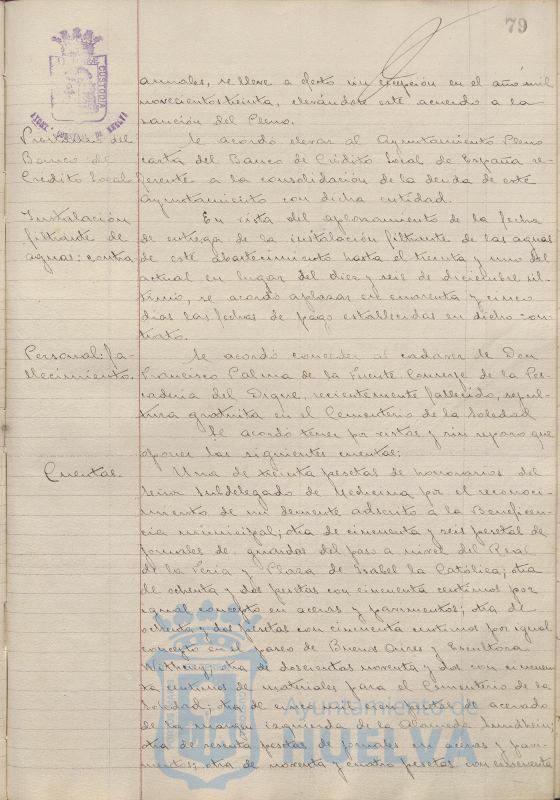 79
CUSTODIA
AYUNT. CONSTAL. DE HUELVA
anuales, se lleve a efecto sin excepción en el año mil
novecientos treinta, elevándose este acuerdo a la
sanción del Pleno.
Prestación del
Banco de
Crédito Local
Se acordó elevar al Ayuntamiento Pleno
carta del Banco de Crédito Local de España re-
ferente a la consolidación de la deuda de este
Ayuntamiento con dicha entidad.
Instalación
filtrante de
aguas: contra-
En vista del aplazamiento de la fecha
de entrega de la instalación filtrante de las aguas
de este abastecimiento hasta el treinta y uno del
actual en lugar del diez y seis de diciembre úl-
timo, se acordó aplazar en cuarenta y cinco
días las fechas de pago establecidas en dicho con-
trato.
Personal: fa-
llecimiento.
Se acordó conceder al cadáver de Don
Francisco Palma de la Fuente, Conserje de la Pes-
cadería del Dique, recientemente fallecido, sepul-
tura gratuita en el Cementerio de la Soledad
Se acordó tener por vistas y sin reparo que
oponer las siguientes cuentas:
Cuentas.
Una de treinta pesetas de honorarios del
Señor Subdelegado de Medicina por el reconoci-
miento de un demente adscrito a la Beneficen-
cia municipal; otra de cincuenta y seis pesetas de
jornales de guardas del paso a nivel del Real
de la Feria y Plaza de Isabel la Católica; otra
de ochenta y dos pesetas con cincuenta céntimos por
igual concepto en aceras y pavimentos; otra de
ochenta y dos pesetas con cincuenta céntimos por igual
concepto en el paseo de Buenos Aires y Escultora
Withney; otra de doscientas noventa y dos con cincuen-
ta céntimos de materiales para el Cementerio de la
Soledad; otra de cinco mil pesetas de acerado
de la margen izquierda de la Alameda Sundheim;
otra de sesenta pesetas de jornales en aceras y pavi-
mentos; otra de noventa y cuatro pesetas con cincuenta
Ayuntamiento de
HUELVA